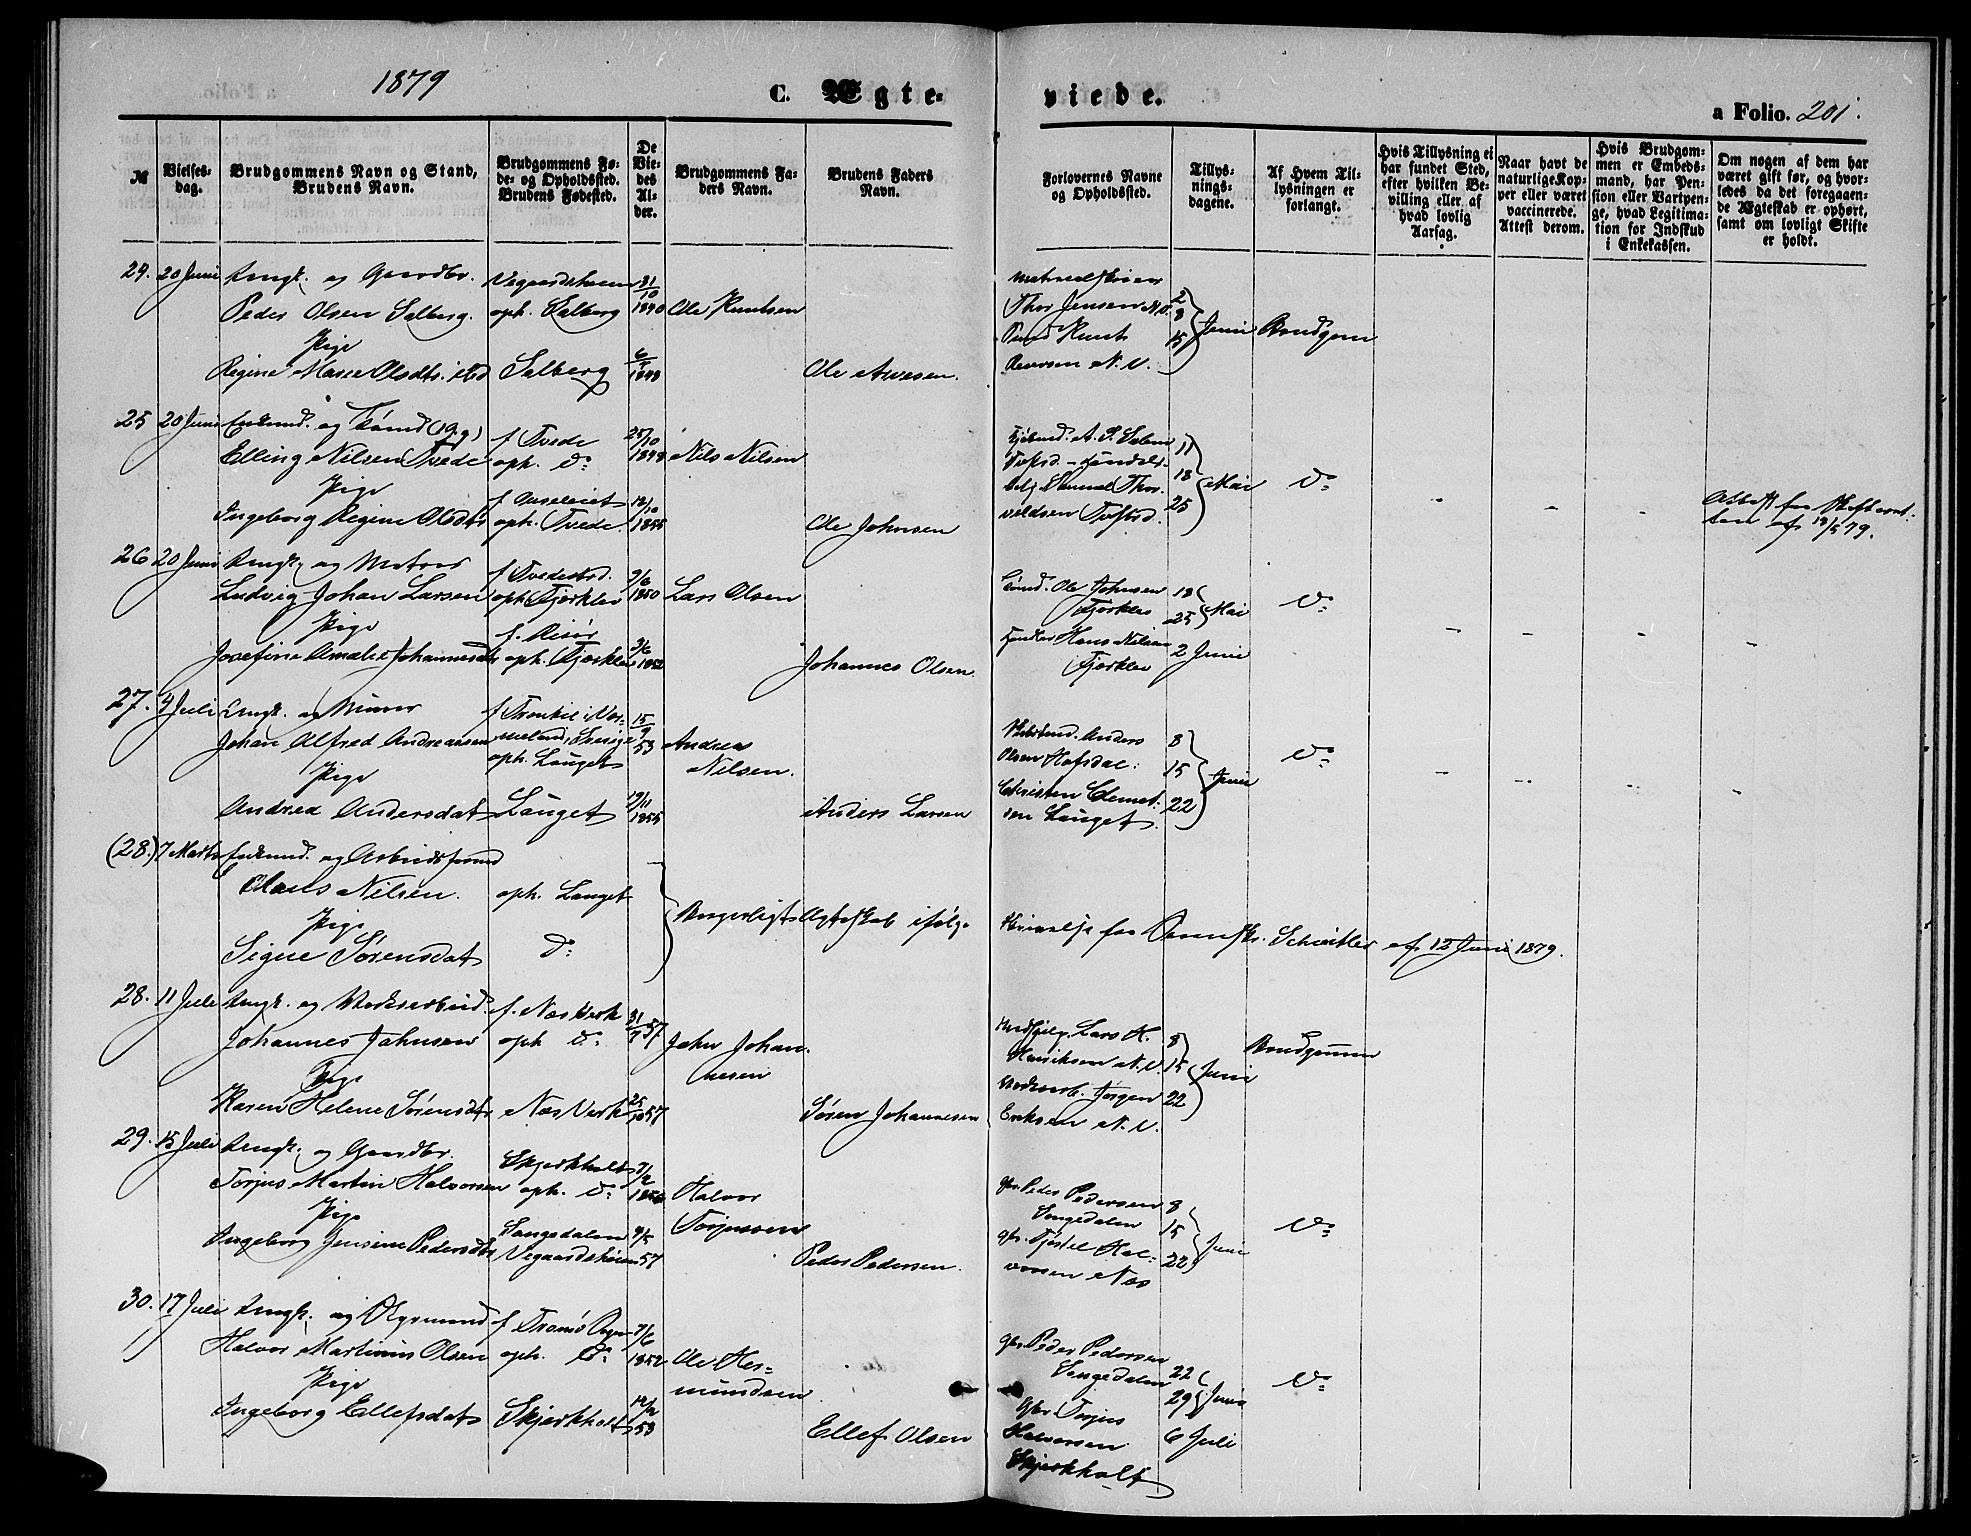 1879
C. Ægte-
viede.
a Folio. 201.
№
Vielses-
dag.
Brudgommens Navn og Stand,
Brudens Navn.
Brudgommens Fø-
de- og Opholdssted.
Brudens Fødested.
De
Vie-
des
Al-
der.
Brudgommens Fa-
ders Navn.
Brudens Faders
Navn.
Forlovernes Navne
og Opholdssted.
Tillys-
nings-
dagene.
Af Hvem Til-
lysningen er
forlangt.
Hvis Tillysning ei
har fundet Sted,
efter hvilken Be-
villing eller af
hvad lovlig
Aarsag.
Naar havt de
naturlige Kop-
per eller været
vaccinerede.
Attest derom.
Hvis Brudgom-
men er Embeds-
mand, har Pen-
sion eller Vartpen-
ge, hvad Legitima-
tion for Indskud
i Enkekassen.
Om nogen af dem har
været gift før, og hvor-
ledes da det foregaaen-
de Ægteskab er ophørt,
samt om lovligt Skifte
er holdt.
24. 20 Juni Ungk. og Gaardbr.
Peder Olsen Salberg.
Pige
Regine Marie Olsdtr. ibd
Vegaardsheien
oph. Salberg
Salberg
31/10 1840
6/4 1848
Ole Knutsen
Ole Avesen.
Thor Jensen N.V.
Knut
N.V.
2
8
15
Juni
Brudgom
25 20 Juni Enkemd. og Tømd (19.g)
Elling Nilsen Tvede
Pige
Ingeborg Regine Olsdtr
f Tvede
oph. do
oph. Tvede
25/10 1848
12/10 1855
Nils Nilsen
Ole Johnsen
Samuel Thor-
valdsen Tvestrd.
11
18
25
Mai
do
Attest fra Skifteret-
ten af 19/5 79.
26 20 Juni Ungk. og Matros
Ludvig Johan Larsen
Pige
Josefine Amalie Johannesdtr
f Tvedestrd.
oph. Fjærkleiv
f. Risør
oph. Fjærkleiv
9/6 1850
3/6 1852
Lars Olsen
Johannes Olsen.
Tømd. Ole Johnsen
Fjærkleiv
Hans Nilsen
Fjærkleiv
18
25
Mai
2 Juni
do
27. 4 Juli Ungk. og Murer
Johan Alfred Andreassen
Pige
Andrea Andersdat
Sverige
oph. Lauget
Lauget
15/9 53
19/11 1855
Andreas
Nilsen.
Anders Larsen
Anders
Olsen Hofsdal.
Christen Clemet-
sen Lauget
8
15
22
Juni
do
(28.) 7 Marts Enkemd. og Arbeidsmand
Claus Nilsen.
Pige
Signe Sørensdat
oph. Lauget
do
Borgerligt Ægteskab ifølge
Skrivelse fra Sorenskr. Scheitler af 12 Juni 1879.
28. 11 Juli Ungk. og Værksarbeid.
Johannes Jahnsen
Pige
Karen Helene Sørensdtr
f. Næs Verk
oph do
Næs Verk
31/7 57
25/10 57
Jahn Johan-
nesen
Søren Johannesen
Lars H.
Henriksen N.V.
Værksarb. Jørgen
Eriksen N.V.
8
15
22
Juni
Brudgommen
29. 15 Juli Ungk. og Gaardbr.
Torjus Martin Halvorsen
Pige
Ingeborg Jensine Pedersdtr
Skjerkholt
oph. do
Songedalen
Vegaardsheien
7/2
9/5 57
Halvor
Torjussen
Peder Pedersen.
gbr. Peder Pedersen
Songedalen
gbr. Tjøstel Hal-
vorsen Næs
8
15
22
Juni
do
30. 17 Juli Ungk. og Styrmand
Halvor Martinius Olsen
Pige
Ingeborg Ellefsdat
f Tromø Sogn
oph. do
Skjerkholt
7/6 1852
12/2 53
Ole Her-
mundsen
Ellef Olsen
gbr. Peder Pedersen
Songedalen
gbr. Torjus
Halvorsen
Skjerkholt
22
29
Juni
6 Juli
do